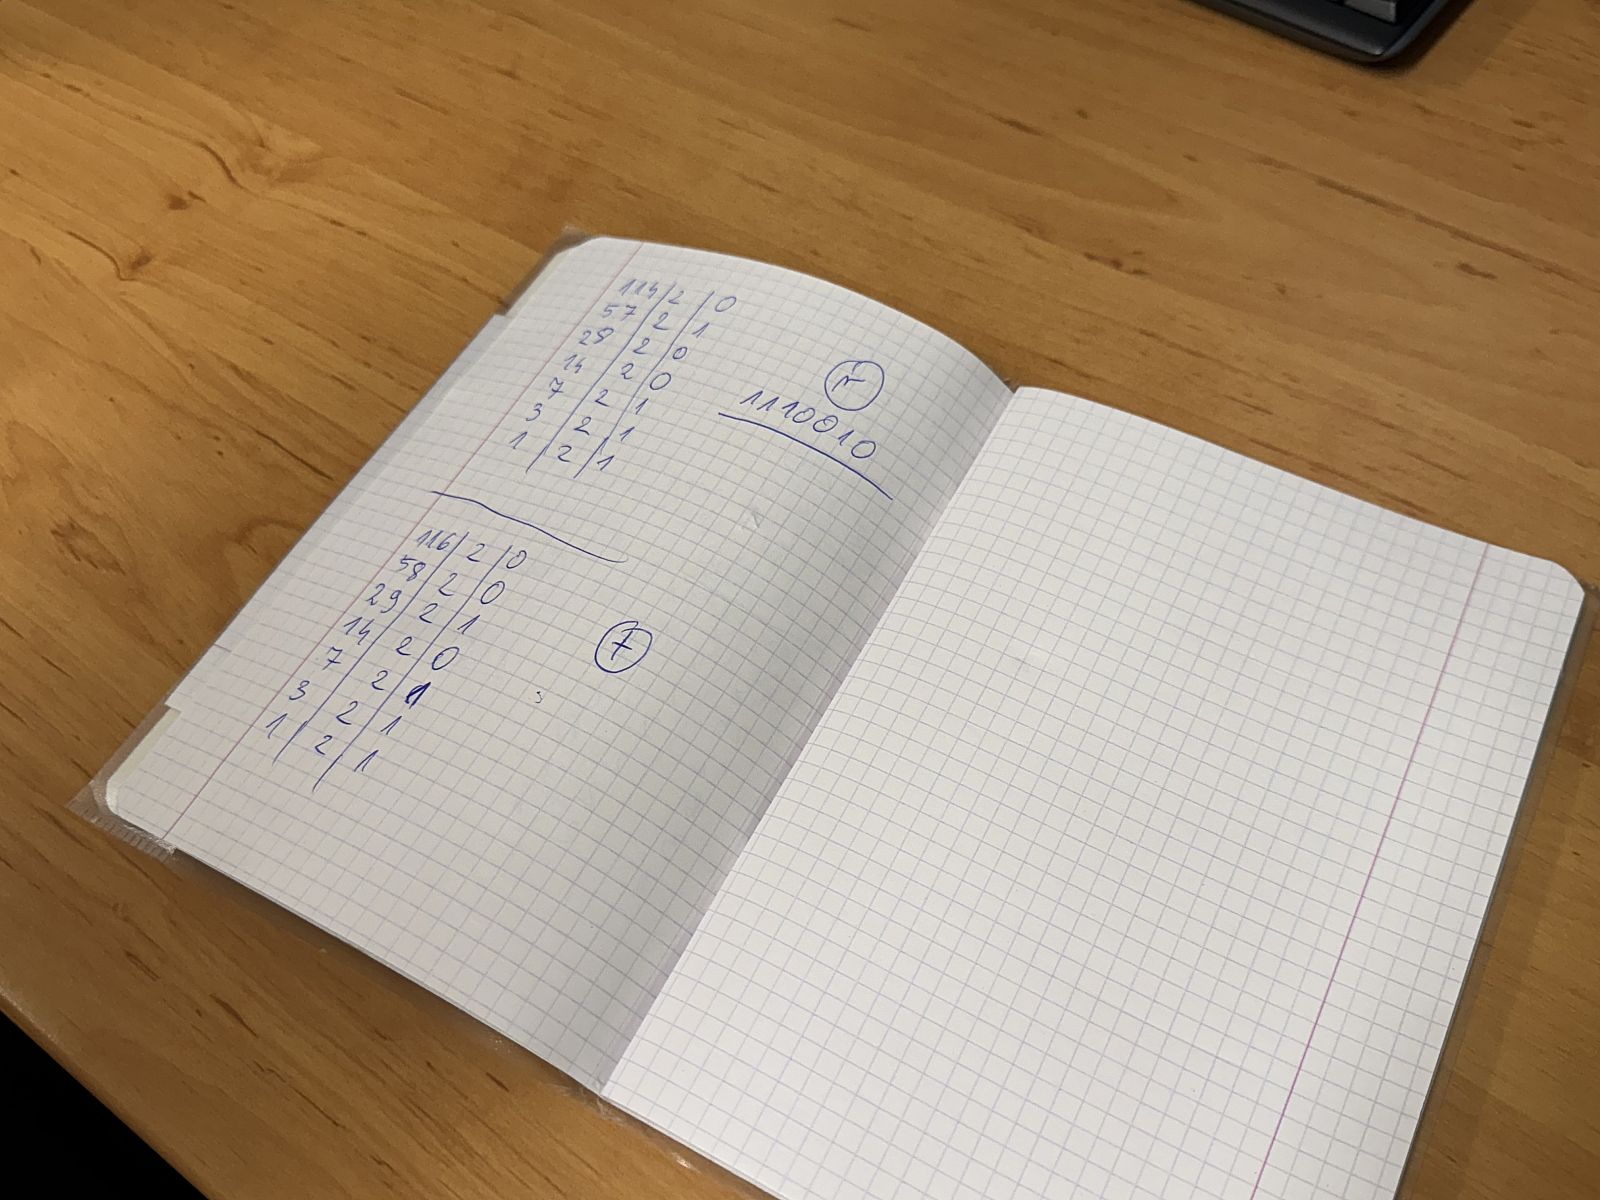 114 | 2 | 0
57 | 2 | 1
28 | 2 | 0
14 | 2 | 0
7 | 2 | 1
3 | 2 | 1
1 | 2 | 1
r
1110010
116 | 2 | 0
58 | 2 | 0
29 | 2 | 1
14 | 2 | 0
7 | 2 | 1
3 | 2 | 1
1 | 2 | 1
t